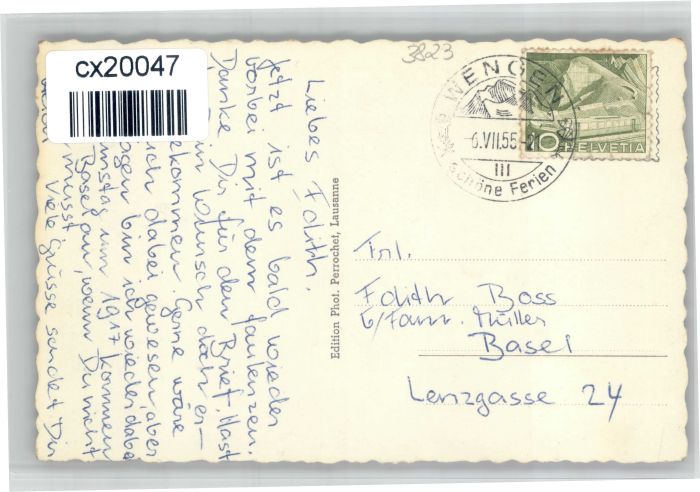 cx20047
3823
WENGEN
6.VII.55
III
schöne Ferien
10 HELVETIA
Liebes Edith.
Jetzt ist es bald wieder
vorbei mit dem faulenzen.
Danke Dir für den Brief. Hast
Wunsch doch er-
bekommen. Gerne wäre
ich dabei gewesen, aber
bin ich wieder dabei
um 1917 kommen
Basel an, wenn Du nicht
musst.
Viele Grüsse sendet Dir
Edition Phot. Perrochet, Lausanne
Frl.
Edith Boss
b/Fam. Müller
Basel
Lenzgasse 24